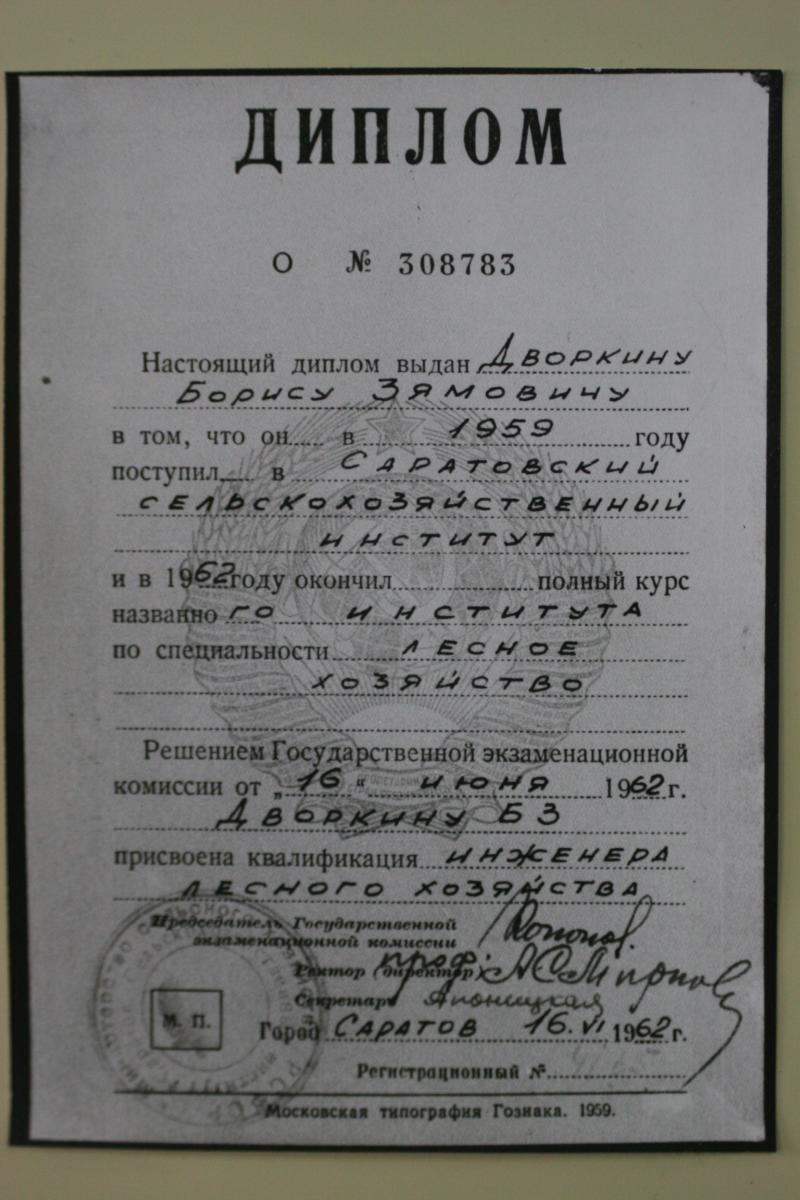 ДИПЛОМ
О № 308783
Настоящий диплом выдан Дворкину
Борису Зямовичу
в том, что он в 1959 году
поступил в Саратовский
сельскохозяйственный
институт
и в 1962 году окончил полный курс
названного института
по специальности лесное
хозяйство
Решением Государственной экзаменационной
комиссии от „16“ июня 1962 г.
Дворкину Б З
присвоена квалификация инженера
лесного хозяйства
Председатель Государственной
экзаменационной комиссии
Ректор (директор) проф.
Секретарь
М. П.
Город Саратов 16. VI 1962 г.
Регистрационный №
Московская типография Гознака. 1959.